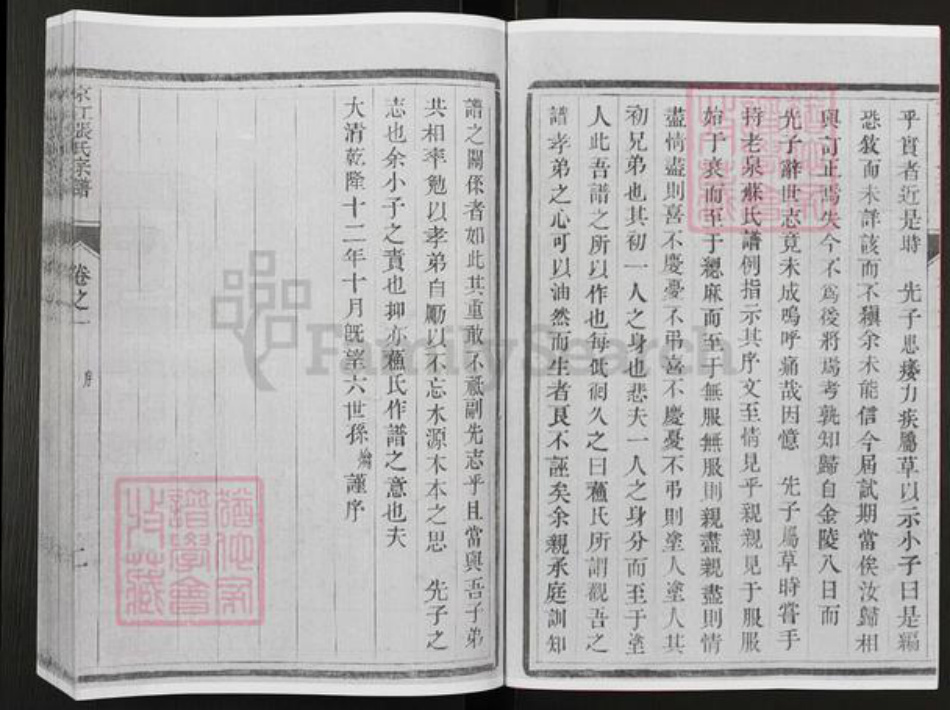 乎實者近是時　先子患痿力疾屬草以示小子曰是編
恐敘而未詳該而不縝余未能信今屆試期當俟汝歸相
與訂正焉失今不爲後將焉考孰知歸自金陵八日而
先子辭世志竟未成嗚呼痛哉因憶　先子屬草時嘗手
持老泉蘇氏譜例指示其序文至情見乎親親見于服服
始于衰而至于緦麻而至于無服無服則親盡親盡則情
盡情盡則喜不慶憂不弔喜不慶憂不弔則塗人塗人其
初兄弟也其初一人之身也悲夫一人之身分而至于塗
人此吾譜之所以作也每低徊久之曰蘓氏所謂觀吾之
譜孝弟之心可以油然而生者良不誣矣余親承庭訓知
譜之關係者如此其重敢不蕆副先志乎且當與吾子弟
共相率勉以孝弟自勵以不忘水源木本之思　先子之
志也余小子之責也抑亦蘓氏作譜之意也夫
大清乾隆十二年十月旣望六世孫　謹序
京江張氏宗譜
卷之一
序
二
FamilySearch
譜學會
收藏